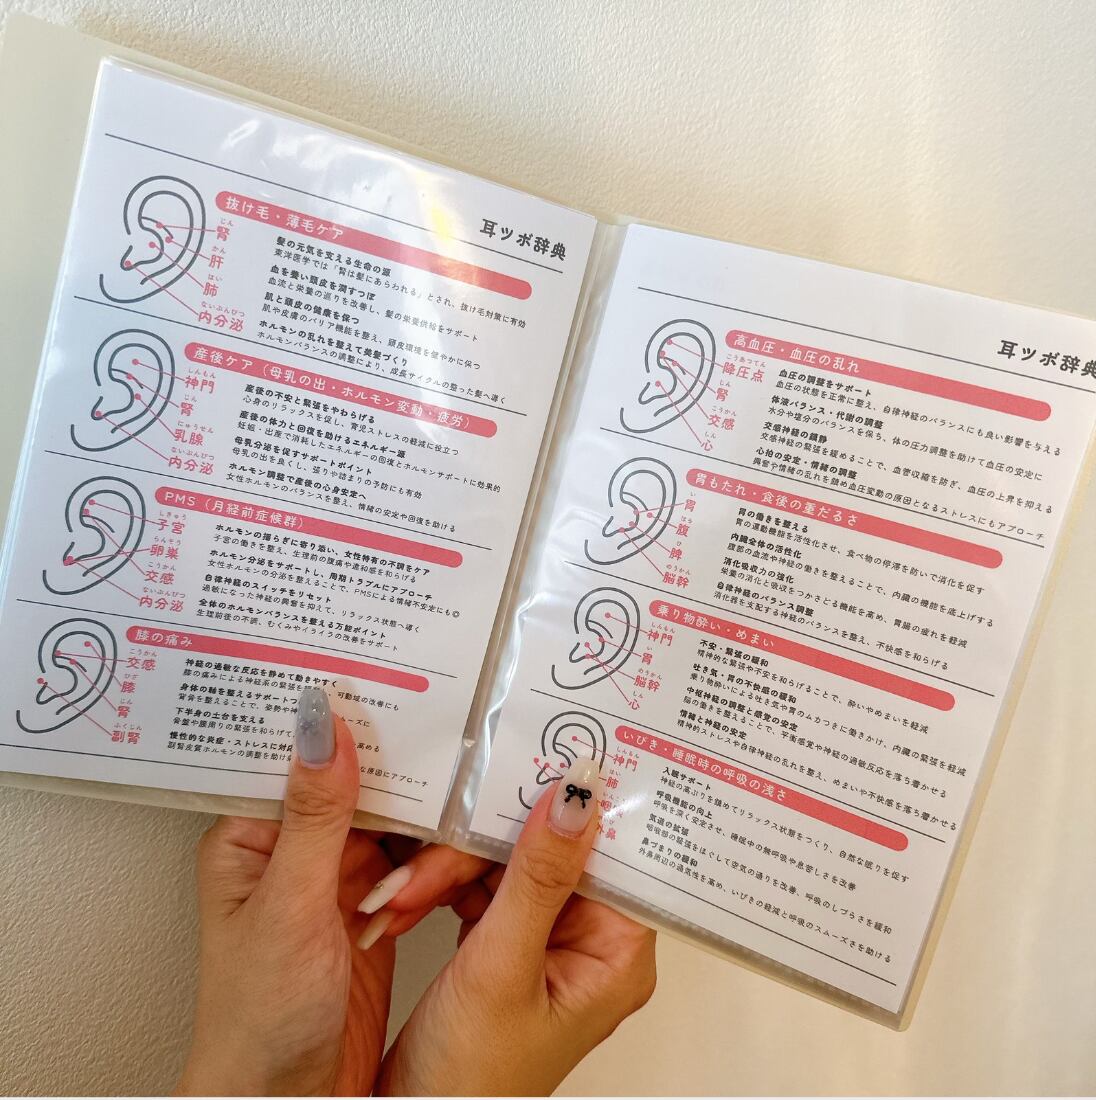 耳ツボ辞典
抜け毛・薄毛ケア
じん
腎
髪の元気を支える生命の源
東洋医学では「腎は髪にあらわれる」とされ、抜け毛対策に有効
かん
肝
血を養い頭皮を潤すつぼ
血流と栄養の巡りを改善し、髪の栄養供給をサポート
はい
肺
肌と頭皮の健康を保つ
肌や皮膚のバリア機能を整え、頭皮環境を健やかに保つ
ないぶんぴつ
内分泌
ホルモンの乱れを整えて美髪づくり
ホルモンバランスの調整により、成長サイクルの整った髪へ導く
産後ケア（母乳の出・ホルモン変動・疲労）
しんもん
神門
産後の不安と緊張をやわらげる
心身のリラックスを促し、育児ストレスの軽減に役立つ
じん
腎
産後の体力と回復を助けるエネルギー源
妊娠・出産で消耗したエネルギーの回復とホルモンサポートに効果的
にゅうせん
乳腺
母乳分泌を促すサポートポイント
母乳の出を良くし、張りや詰まりの予防にも有効
ないぶんぴつ
内分泌
ホルモン調整で産後の心身安定へ
女性ホルモンのバランスを整え、情緒の安定や回復を助ける
PMS（月経前症候群）
しきゅう
子宮
ホルモンの揺らぎに寄り添い、女性特有の不調をケア
子宮の働きを整え、生理前の腹痛や違和感を和らげる
らんそう
卵巣
ホルモン分泌をサポートし、周期トラブルにアプローチ
女性ホルモンの分泌を整えることで、PMSによる情緒不安定にも◎
こうかん
交感
自律神経のスイッチをリセット
過敏になった神経の興奮を抑えて、リラックス状態へ導く
ないぶんぴつ
内分泌
全体のホルモンバランスを整える万能ポイント
生理前後の不調、むくみやイライラの改善をサポート
膝の痛み
こうかん
交感
神経の過敏な反応を静めて動きやすく
膝の痛みによる神経系の緊張を
、可動域の改善にも
ひざ
膝
身体の軸を整えるサポート
背骨を整えることで、姿勢や
ムーズに
じん
腎
下半身の土台を支える
骨盤や腰周りの緊張をほぐして
高める
ふくじん
副腎
慢性的な炎症・ストレスに対応
副腎皮質ホルモンの調整を助け
な原因にアプローチ
耳ツボ辞典
高血圧・血圧の乱れ
こうあつてん
降圧点
血圧の調整をサポート
血圧の状態を正常に整え、自律神経のバランスにも良い影響を与える
じん
腎
体液バランス・代謝の調整
水分や塩分のバランスを保ち、体の圧力調整を助けて血圧の安定に
こうかん
交感
交感神経の鎮静
交感神経の緊張を緩めることで、血管収縮を防ぎ、血圧の上昇を抑える
しん
心
心拍の安定・情緒の調整
興奮や情緒の乱れを鎮め血圧変動の原因となるストレスにもアプローチ
胃もたれ・食後の重だるさ
い
胃
胃の働きを整える
胃の運動機能を活性化させ、食べ物の停滞を防いで消化を促す
はら
腹
内臓全体の活性化
腹部の血流や神経の働きを整えることで、内臓の機能を底上げする
ひ
脾
消化吸収力の強化
栄養の消化と吸収をつかさどる機能を高め、胃腸の疲れを軽減
のうかん
脳幹
自律神経のバランス調整
消化器を支配する神経のバランスを整え、不快感を和らげる
乗り物酔い・めまい
しんもん
神門
不安・緊張の緩和
精神的な緊張や不安を和らげることで、酔いやめまいを軽減
い
胃
吐き気・胃の不快感の緩和
乗り物酔いによる吐き気や胃のムカつきに働きかけ、内臓の緊張を軽減
のうかん
脳幹
中枢神経の調整と感覚の安定
脳の働きを整えることで、平衡感覚や神経の過敏反応を落ち着かせる
しん
心
情緒と神経の安定
精神的ストレスや自律神経の乱れを整え、めまいや不快感を落ち着かせる
いびき・睡眠時の呼吸の浅さ
しんもん
神門
入眠サポート
神経の高ぶりを鎮めてリラックス状態をつくり、自然な眠りを促す
はい
肺
呼吸機能の向上
呼吸を深く安定させ、睡眠中の無呼吸や息苦しさを改善
気道の拡張
咽喉部の緊張をほぐして空気の通りを改善、呼吸のしづらさを緩和
外鼻
鼻づまりの緩和
外鼻周辺の通気性を高め、いびきの軽減と呼吸のスムーズさを助ける